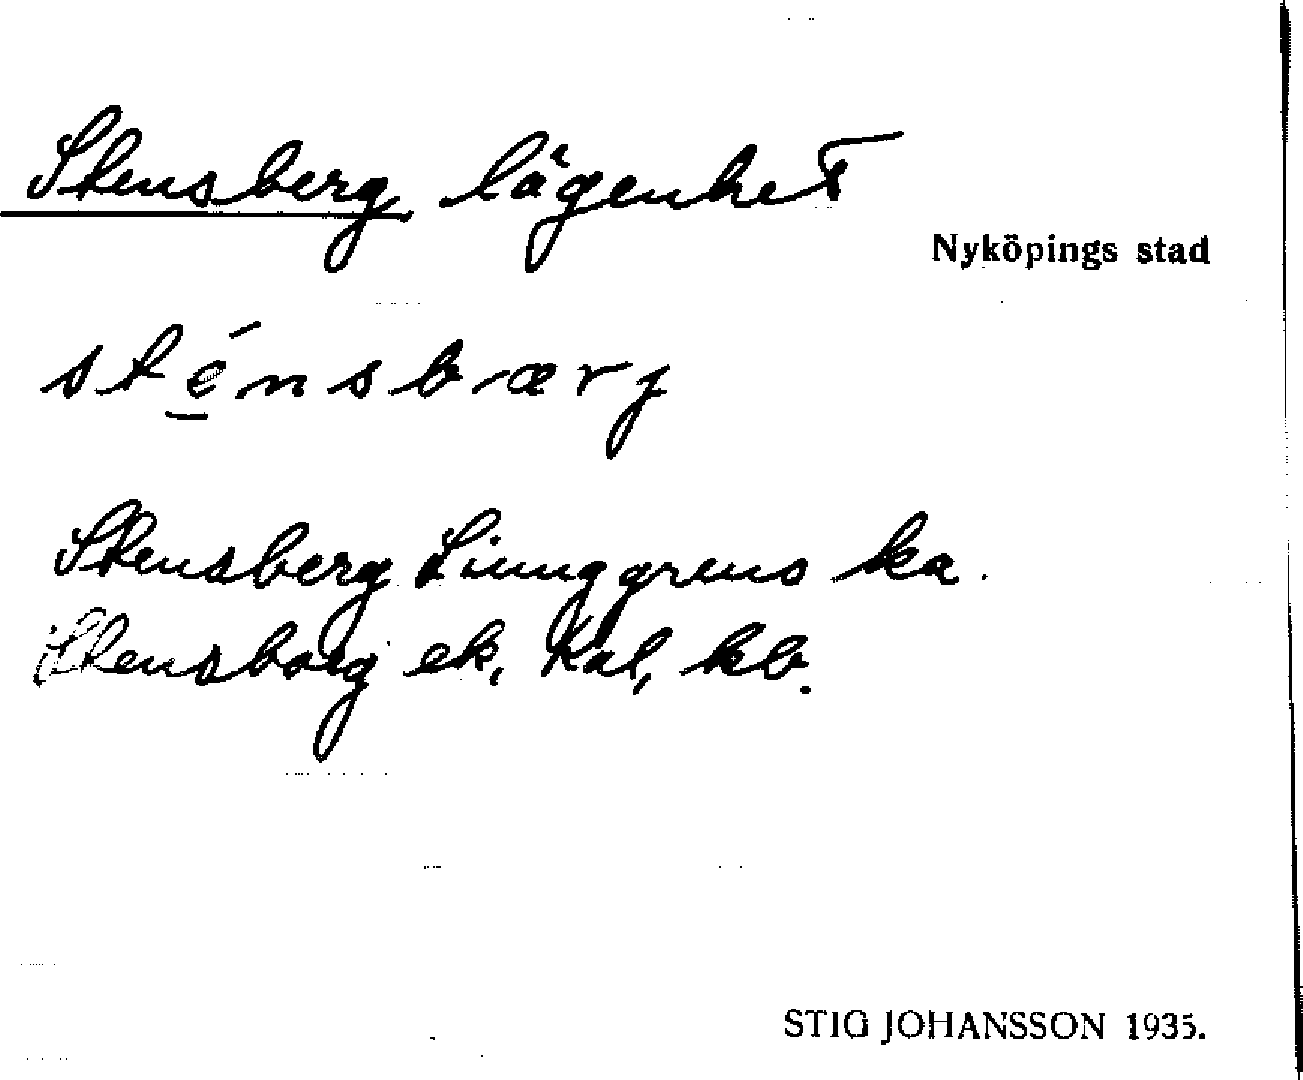 Stensberg lägenhet
Nyköpings stad
sténsbærj
Stensberg Ljunggrens ka.
Stensborg ek, Kal, kb.
STIG JOHANSSON 1935.